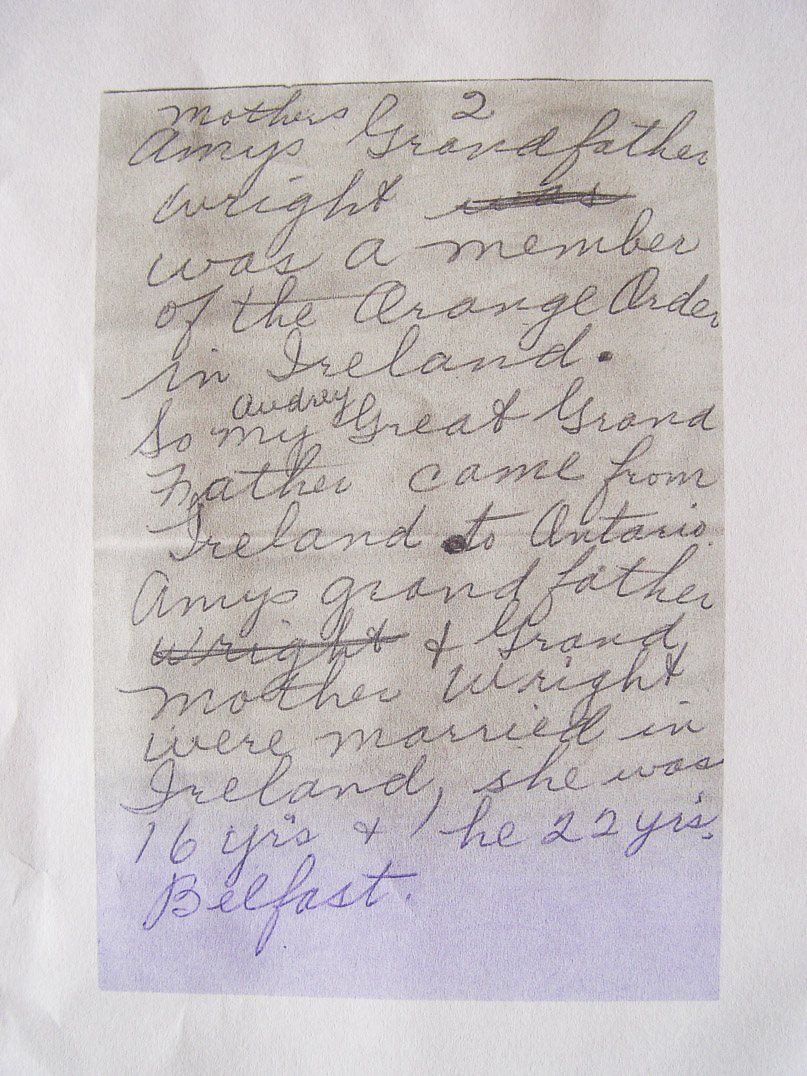 mothers 2
Amys Grandfather
Wright was
was a member
of the Orange Order
in Ireland.
Audrey
So my Great Grand
Father came from
Ireland to Ontario.
Amys grandfather
Wright & Grand
mother Wright
were married in
Ireland, she was
16 yrs & he 22 yrs.
Belfast.